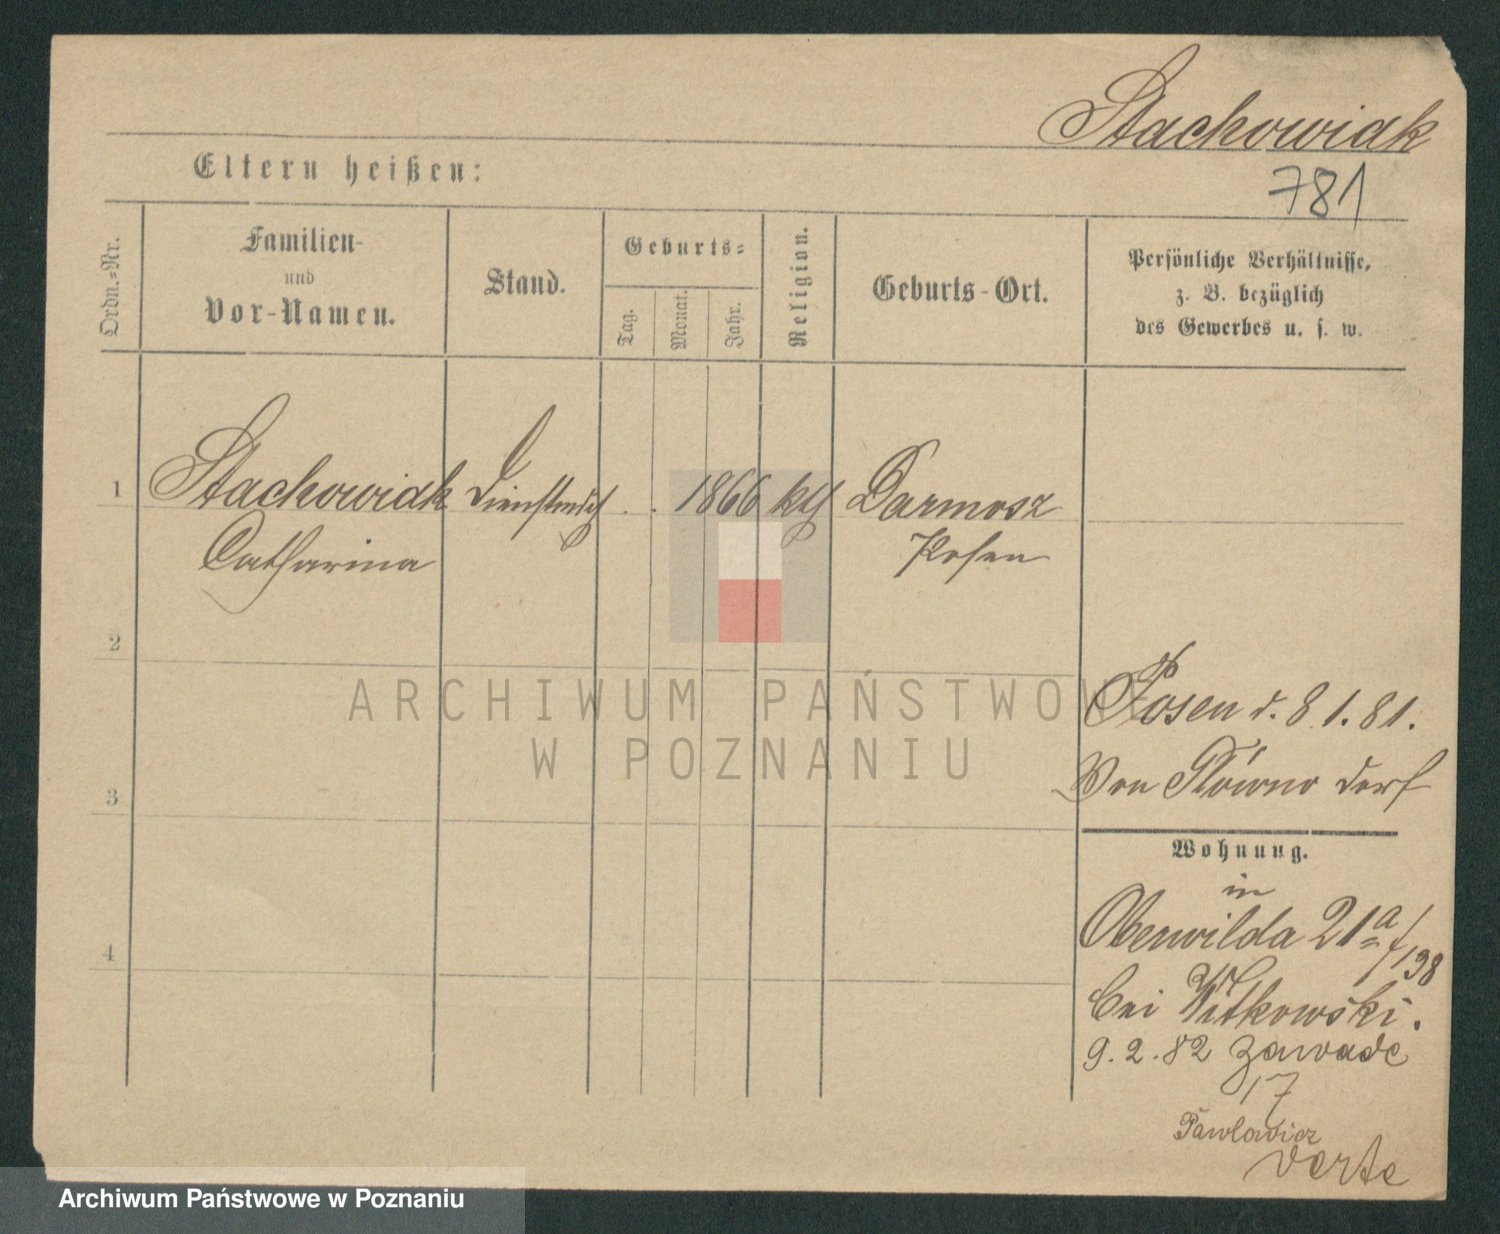 Stachowiak
781
Eltern heißen:
Ordn.-Nr.
Familien-
und
Vor-Namen.
Stand.
Geburts-
Tag.
Monat.
Jahr.
Religion.
Geburts-Ort.
Persönliche Verhältnisse,
z. B. bezüglich
des Gewerbes u. s. w.
1 Stachowiak 1866 kth Darmosz
Catharina Posen
2
Posen d. 8 1. 81.
Von Główno Dorf
3
Wohnung.
in
Oberwilda 21a/198
4
bei Witkowski.
9. 2. 82 Zawade
17
Pawlowicz
verte
ARCHIWUM PAŃSTWOWE
W POZNANIU
Archiwum Państwowe w Poznaniu